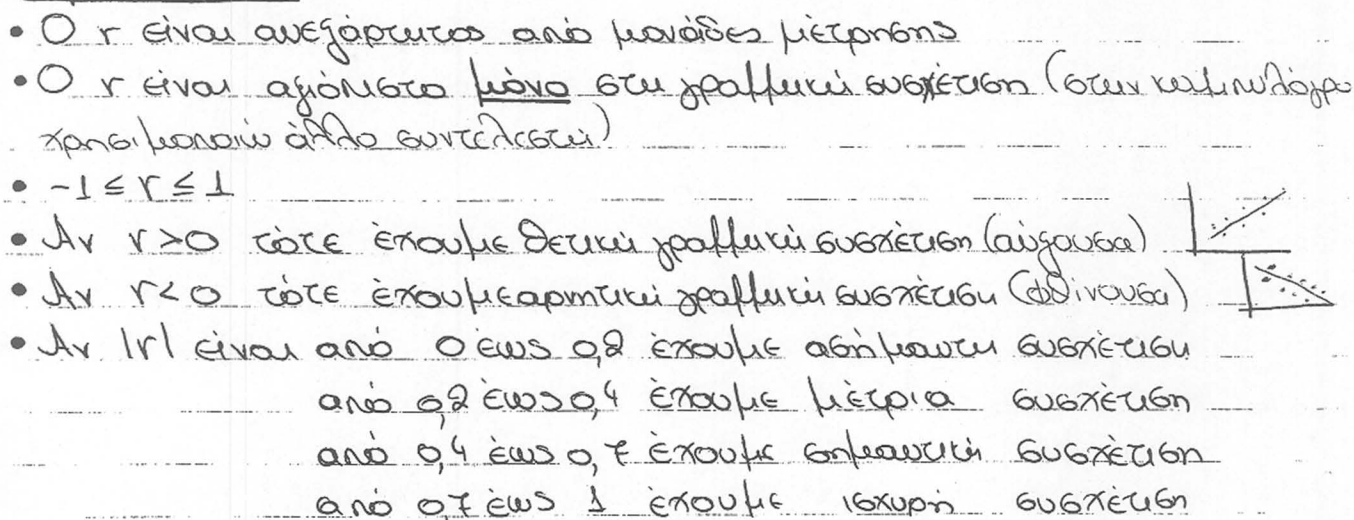 • Ο r είναι ανεξάρτητος από μονάδες μέτρησης
• Ο r είναι αξιόπιστο μόνο στη γραμμική συσχέτιση (στην καμπυλόγρα
χρησιμοποιώ άλλο συντελεστή)
• -1 ≤ r ≤ 1
• Αν r>0 τότε έχουμε θετική γραμμική συσχέτιση (αύξουσα)
• Αν r<0 τότε έχουμε αρνητική γραμμική συσχέτιση (φθίνουσα)
• Αν |r| είναι από 0 έως 0,2 έχουμε ασήμαντη συσχέτιση
από 0,2 έως 0,4 έχουμε μέτρια συσχέτιση
από 0,4 έως 0,7 έχουμε σημαντική συσχέτιση
από 0,7 έως 1 έχουμε ισχυρή συσχέτιση